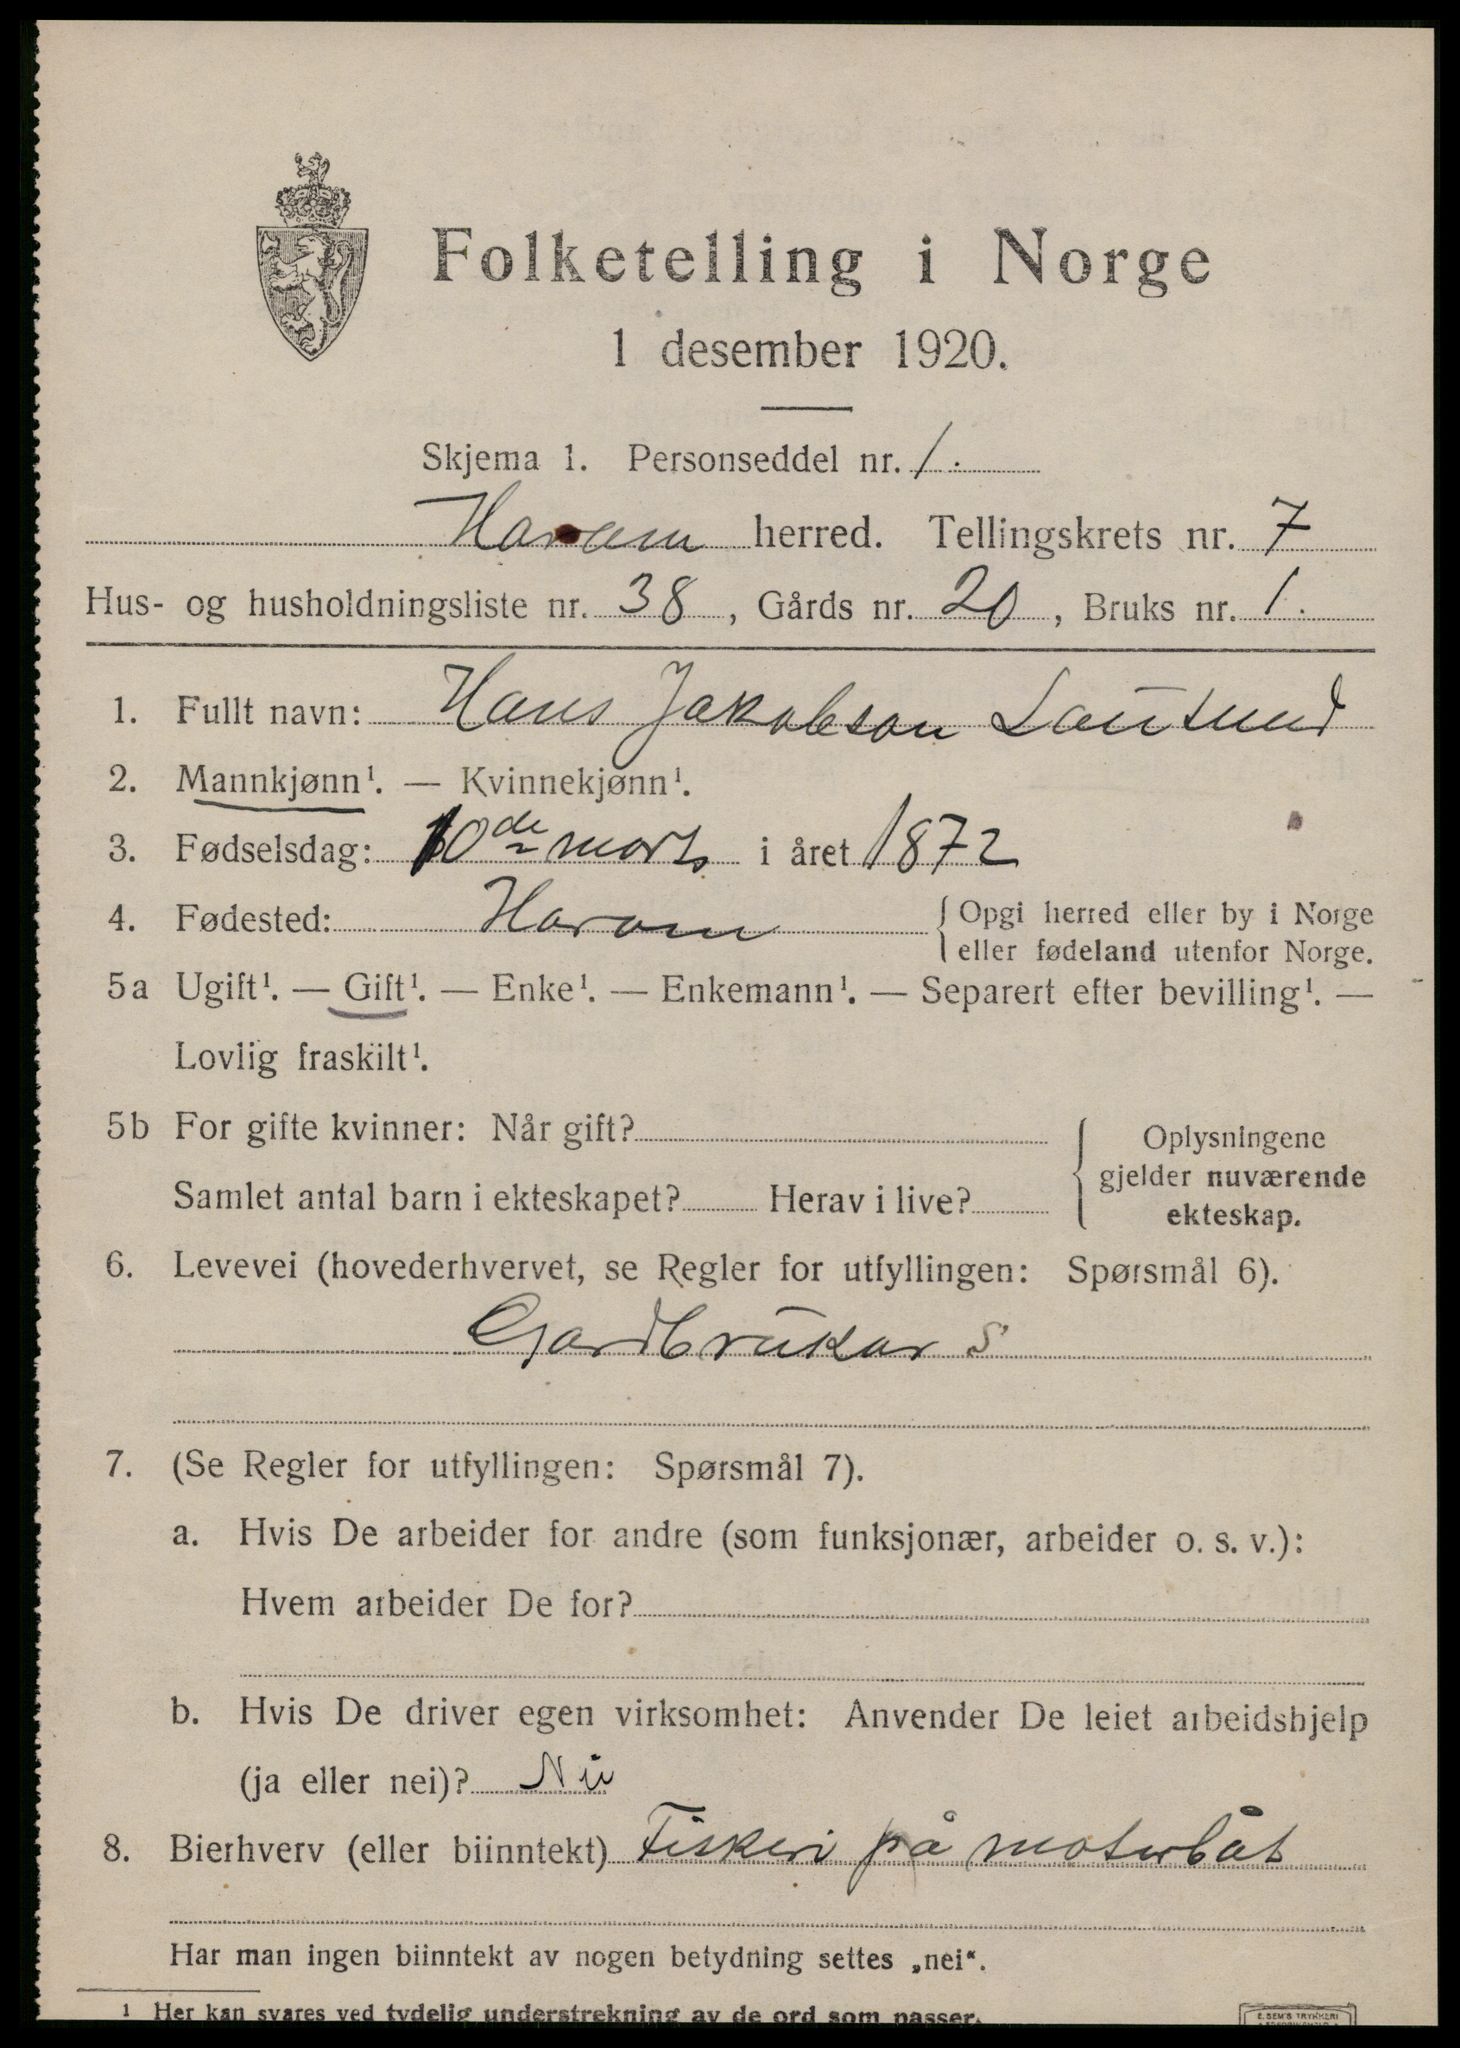 Folketelling i Norge
1 desember 1920.
Skjema 1. Personseddel nr. 1.
Haram herred. Tellingskrets nr. 7
Hus- og husholdningsliste nr. 38, Gårds nr. 20, Bruks nr. 1.
1. Fullt navn: Hans Jakobson Lausund
2. Mannkjønn¹. — Kvinnekjønn¹.
3. Fødselsdag: 10de mars i året 1872
4. Fødested: Haram { Opgi herred eller by i Norge
eller fødeland utenfor Norge.
5a Ugift¹. — Gift¹. — Enke¹. — Enkemann¹. — Separert efter bevilling¹. —
Lovlig fraskilt¹.
5b For gifte kvinner: Når gift?
Samlet antal barn i ekteskapet? Herav i live?
{ Oplysningene
gjelder nuværende
ekteskap.
6. Levevei (hovederhvervet, se Regler for utfyllingen: Spørsmål 6).
Gardbrukar S
7. (Se Regler for utfyllingen: Spørsmål 7).
a. Hvis De arbeider for andre (som funksjonær, arbeider o. s. v.):
Hvem arbeider De for?
b. Hvis De driver egen virksomhet: Anvender De leiet arbeidshjelp
(ja eller nei)? Nei
8. Bierhverv (eller biinntekt) Fiskeri på motorbåt
Har man ingen biinntekt av nogen betydning settes „nei“.
1 Her kan svares ved tydelig understrekning av de ord som passer.
E. SEM'S TRYKKERI